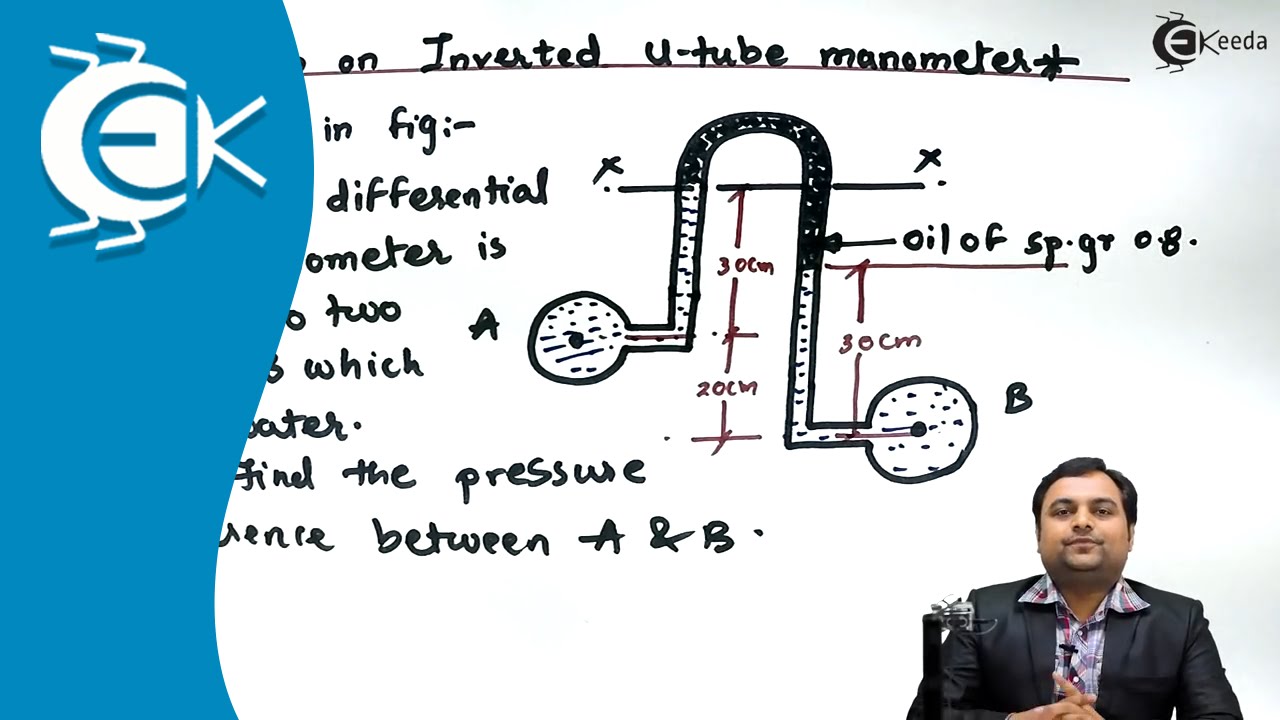 on Inverted U-tube manometer*
EKeeda
in fig:-
differential
ometer is
two
which
water.
find the pressure
rence between A & B.
X X
Oil of sp.gr 0.8.
30cm
A
30cm
20cm
B
EK